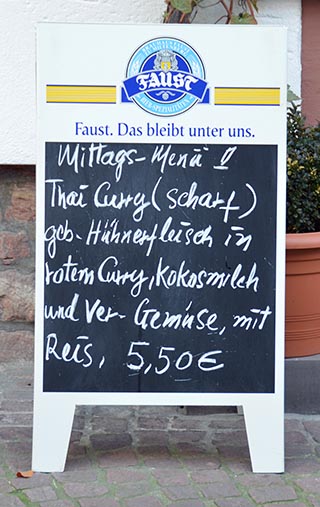 FAUST
Faust. Das bleibt unter uns.
Mittags-Menü !!
Thai Curry (scharf)
geb. Hühnerfleisch in
rotem Curry, Kokosmilch
und Ver- Gemüse, mit
Reis, 5,50€